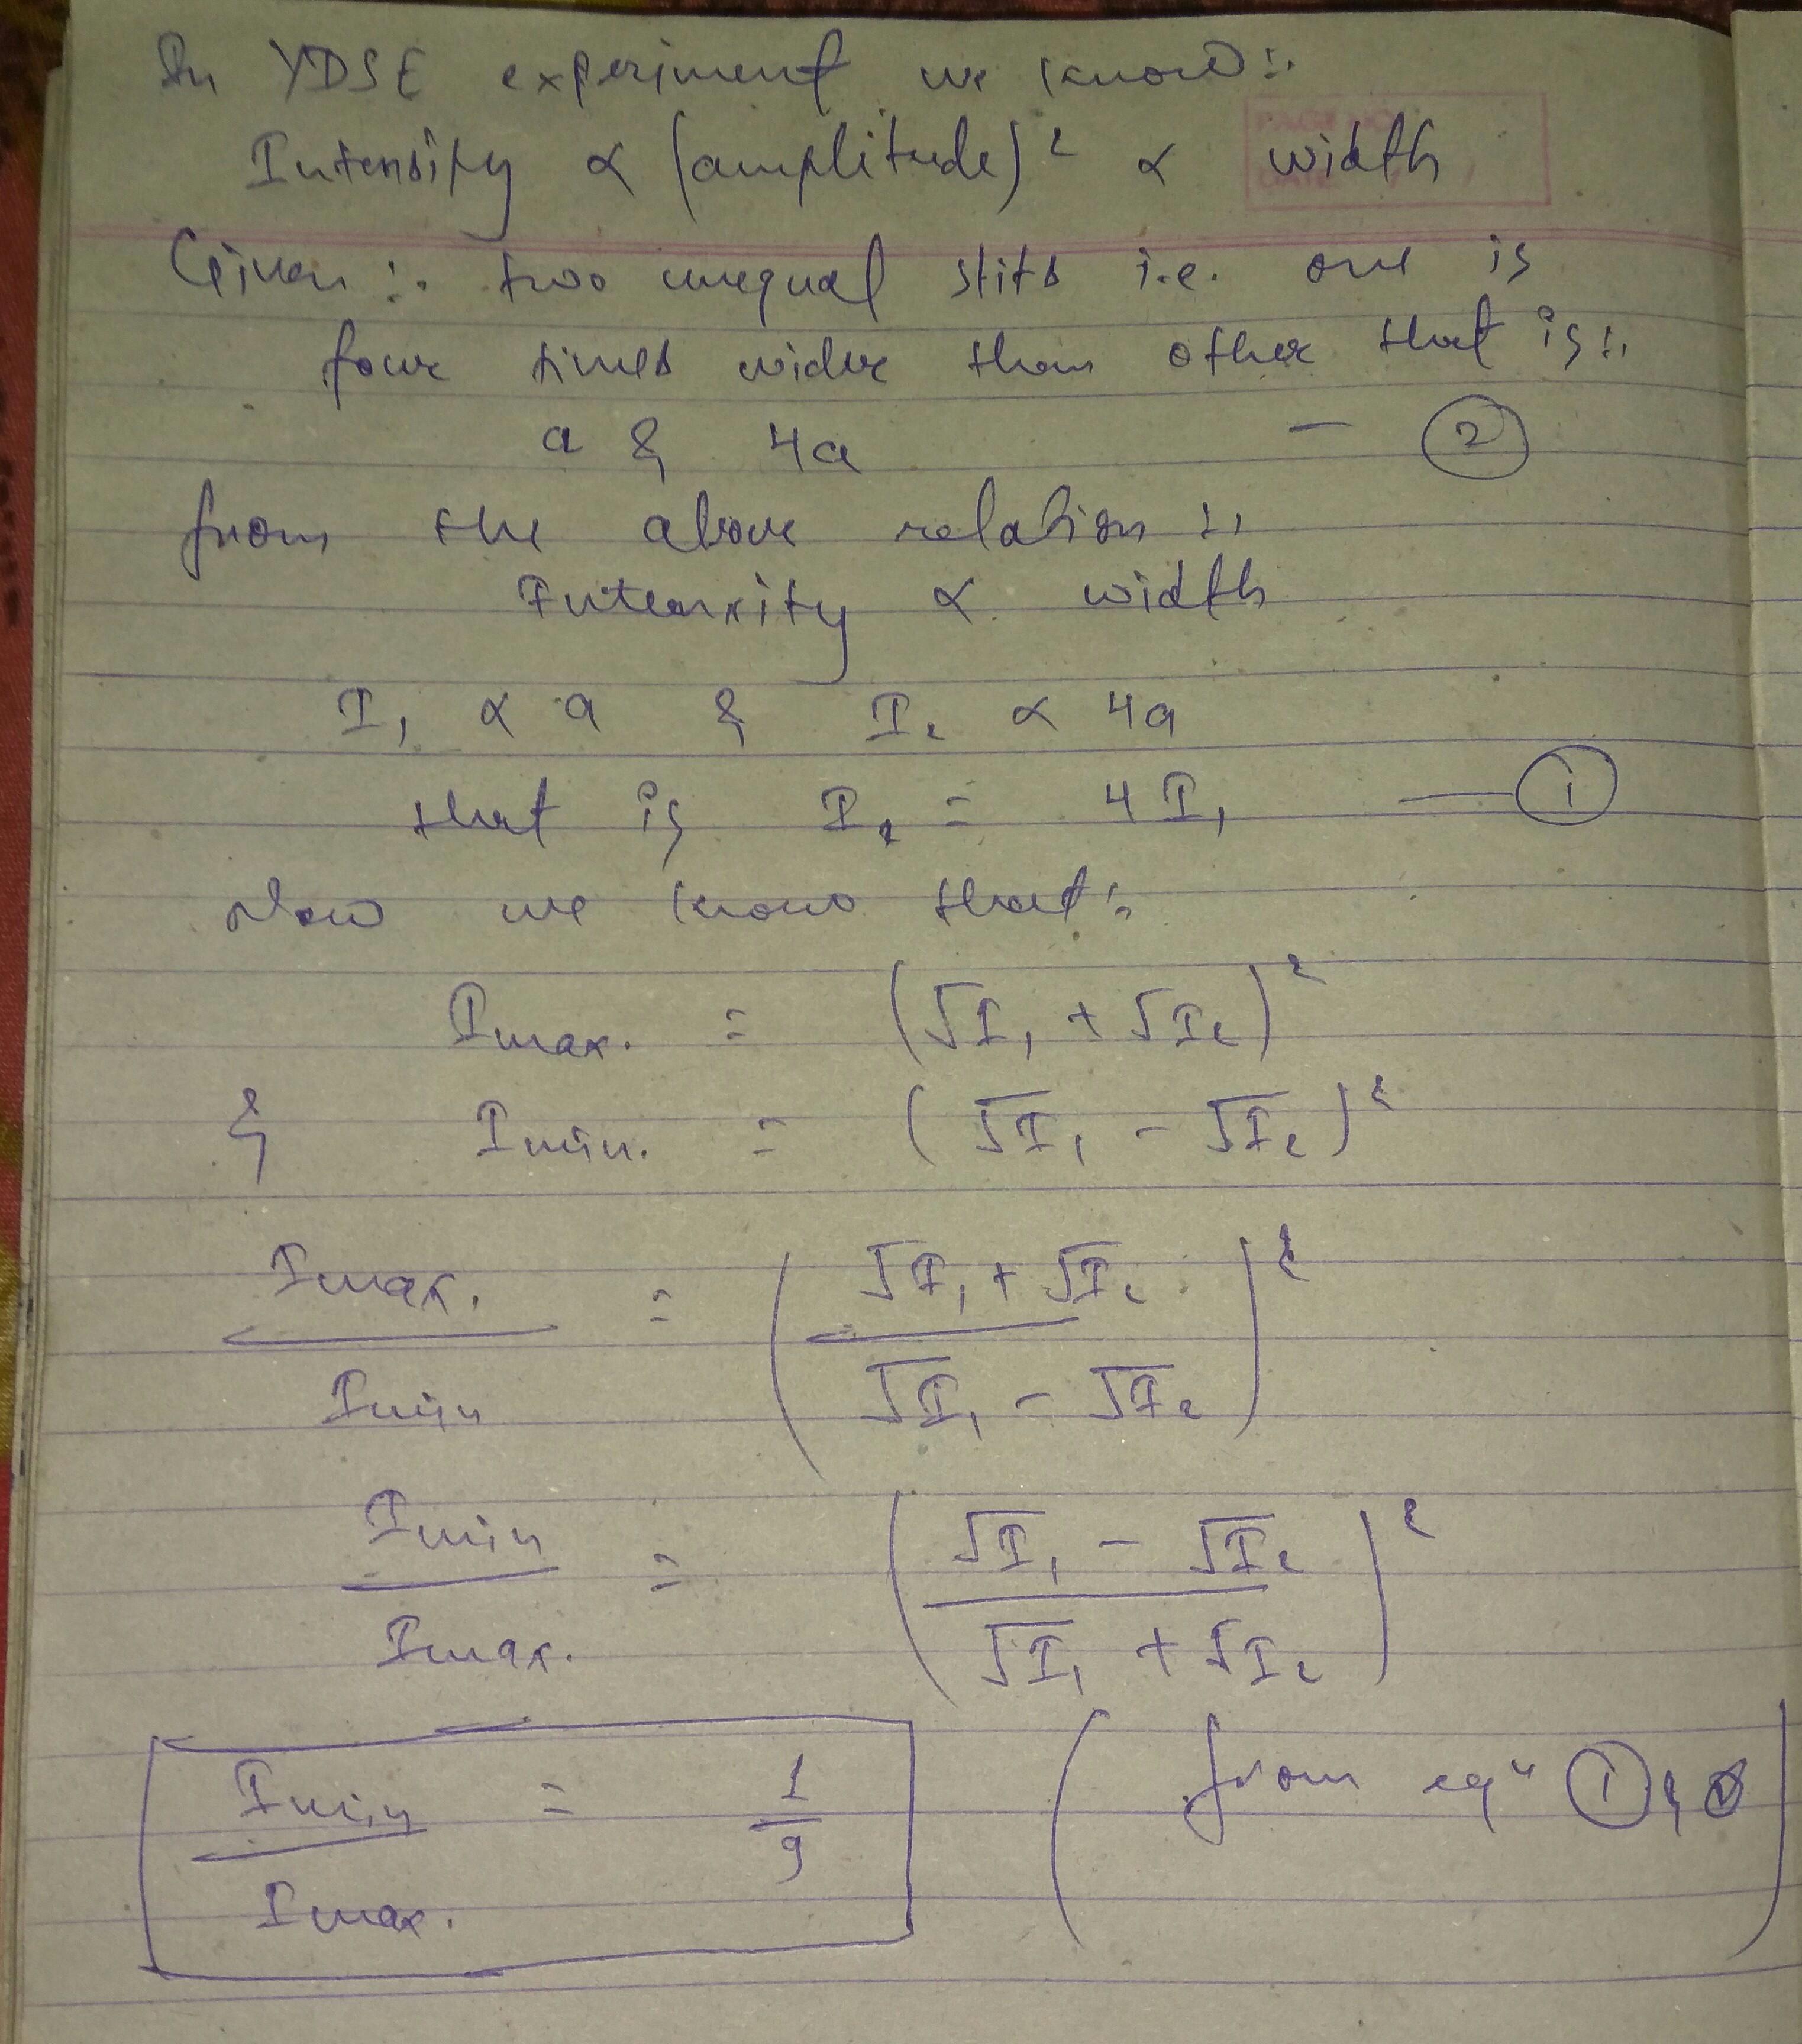 In YDSE experiment we know :.
Intensity ∝ (amplitude)² ∝ width
PAGE NO
DATE
Given :. two unequal slits i.e. one is
four times wider than other that is :.
a & 4a — ②
from the above relation :.
Intensity ∝ width
I₁ ∝ a & I₂ ∝ 4a
that is I₂ = 4I₁ — ①
Now we know that :.
Imax. = (√I₁ + √I₂)²
& Imin. = (√I₁ - √I₂)²
Imax. / Imin = ((√I₁ + √I₂) / (√I₁ - √I₂))²
Imin / Imax. = ((√I₁ - √I₂) / (√I₁ + √I₂))²
Imin / Imax. = 1/9 (from eqⁿ ① &)